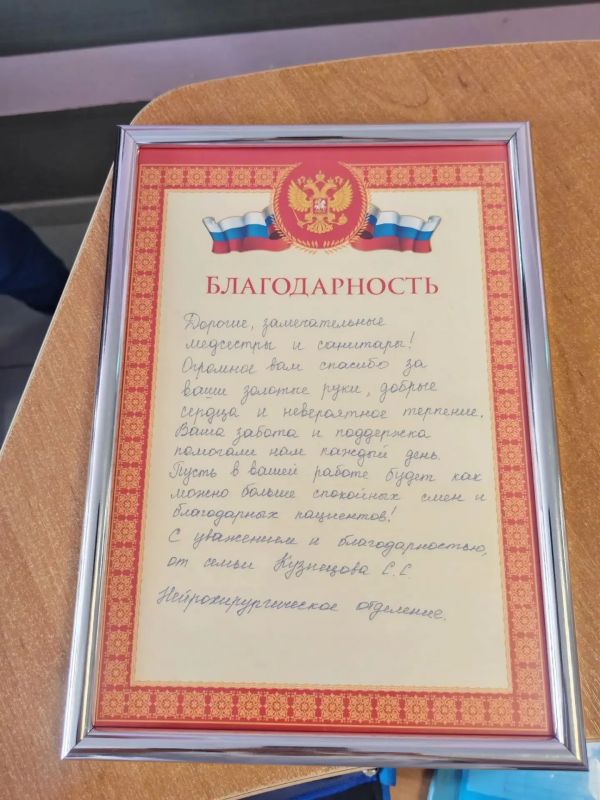 БЛАГОДАРНОСТЬ
Дорогие, замечательные
медсестры и санитары!
Огромное вам спасибо за
ваши золотые руки, добрые
сердца и невероятное терпение.
Ваша забота и поддержка
помогали нам каждый день.
Пусть в вашей работе будет как
можно больше спокойных смен и
благодарных пациентов!
С уважением и благодарностью,
от семьи Кузнецова С.С.
Нейрохирургическое отделение.